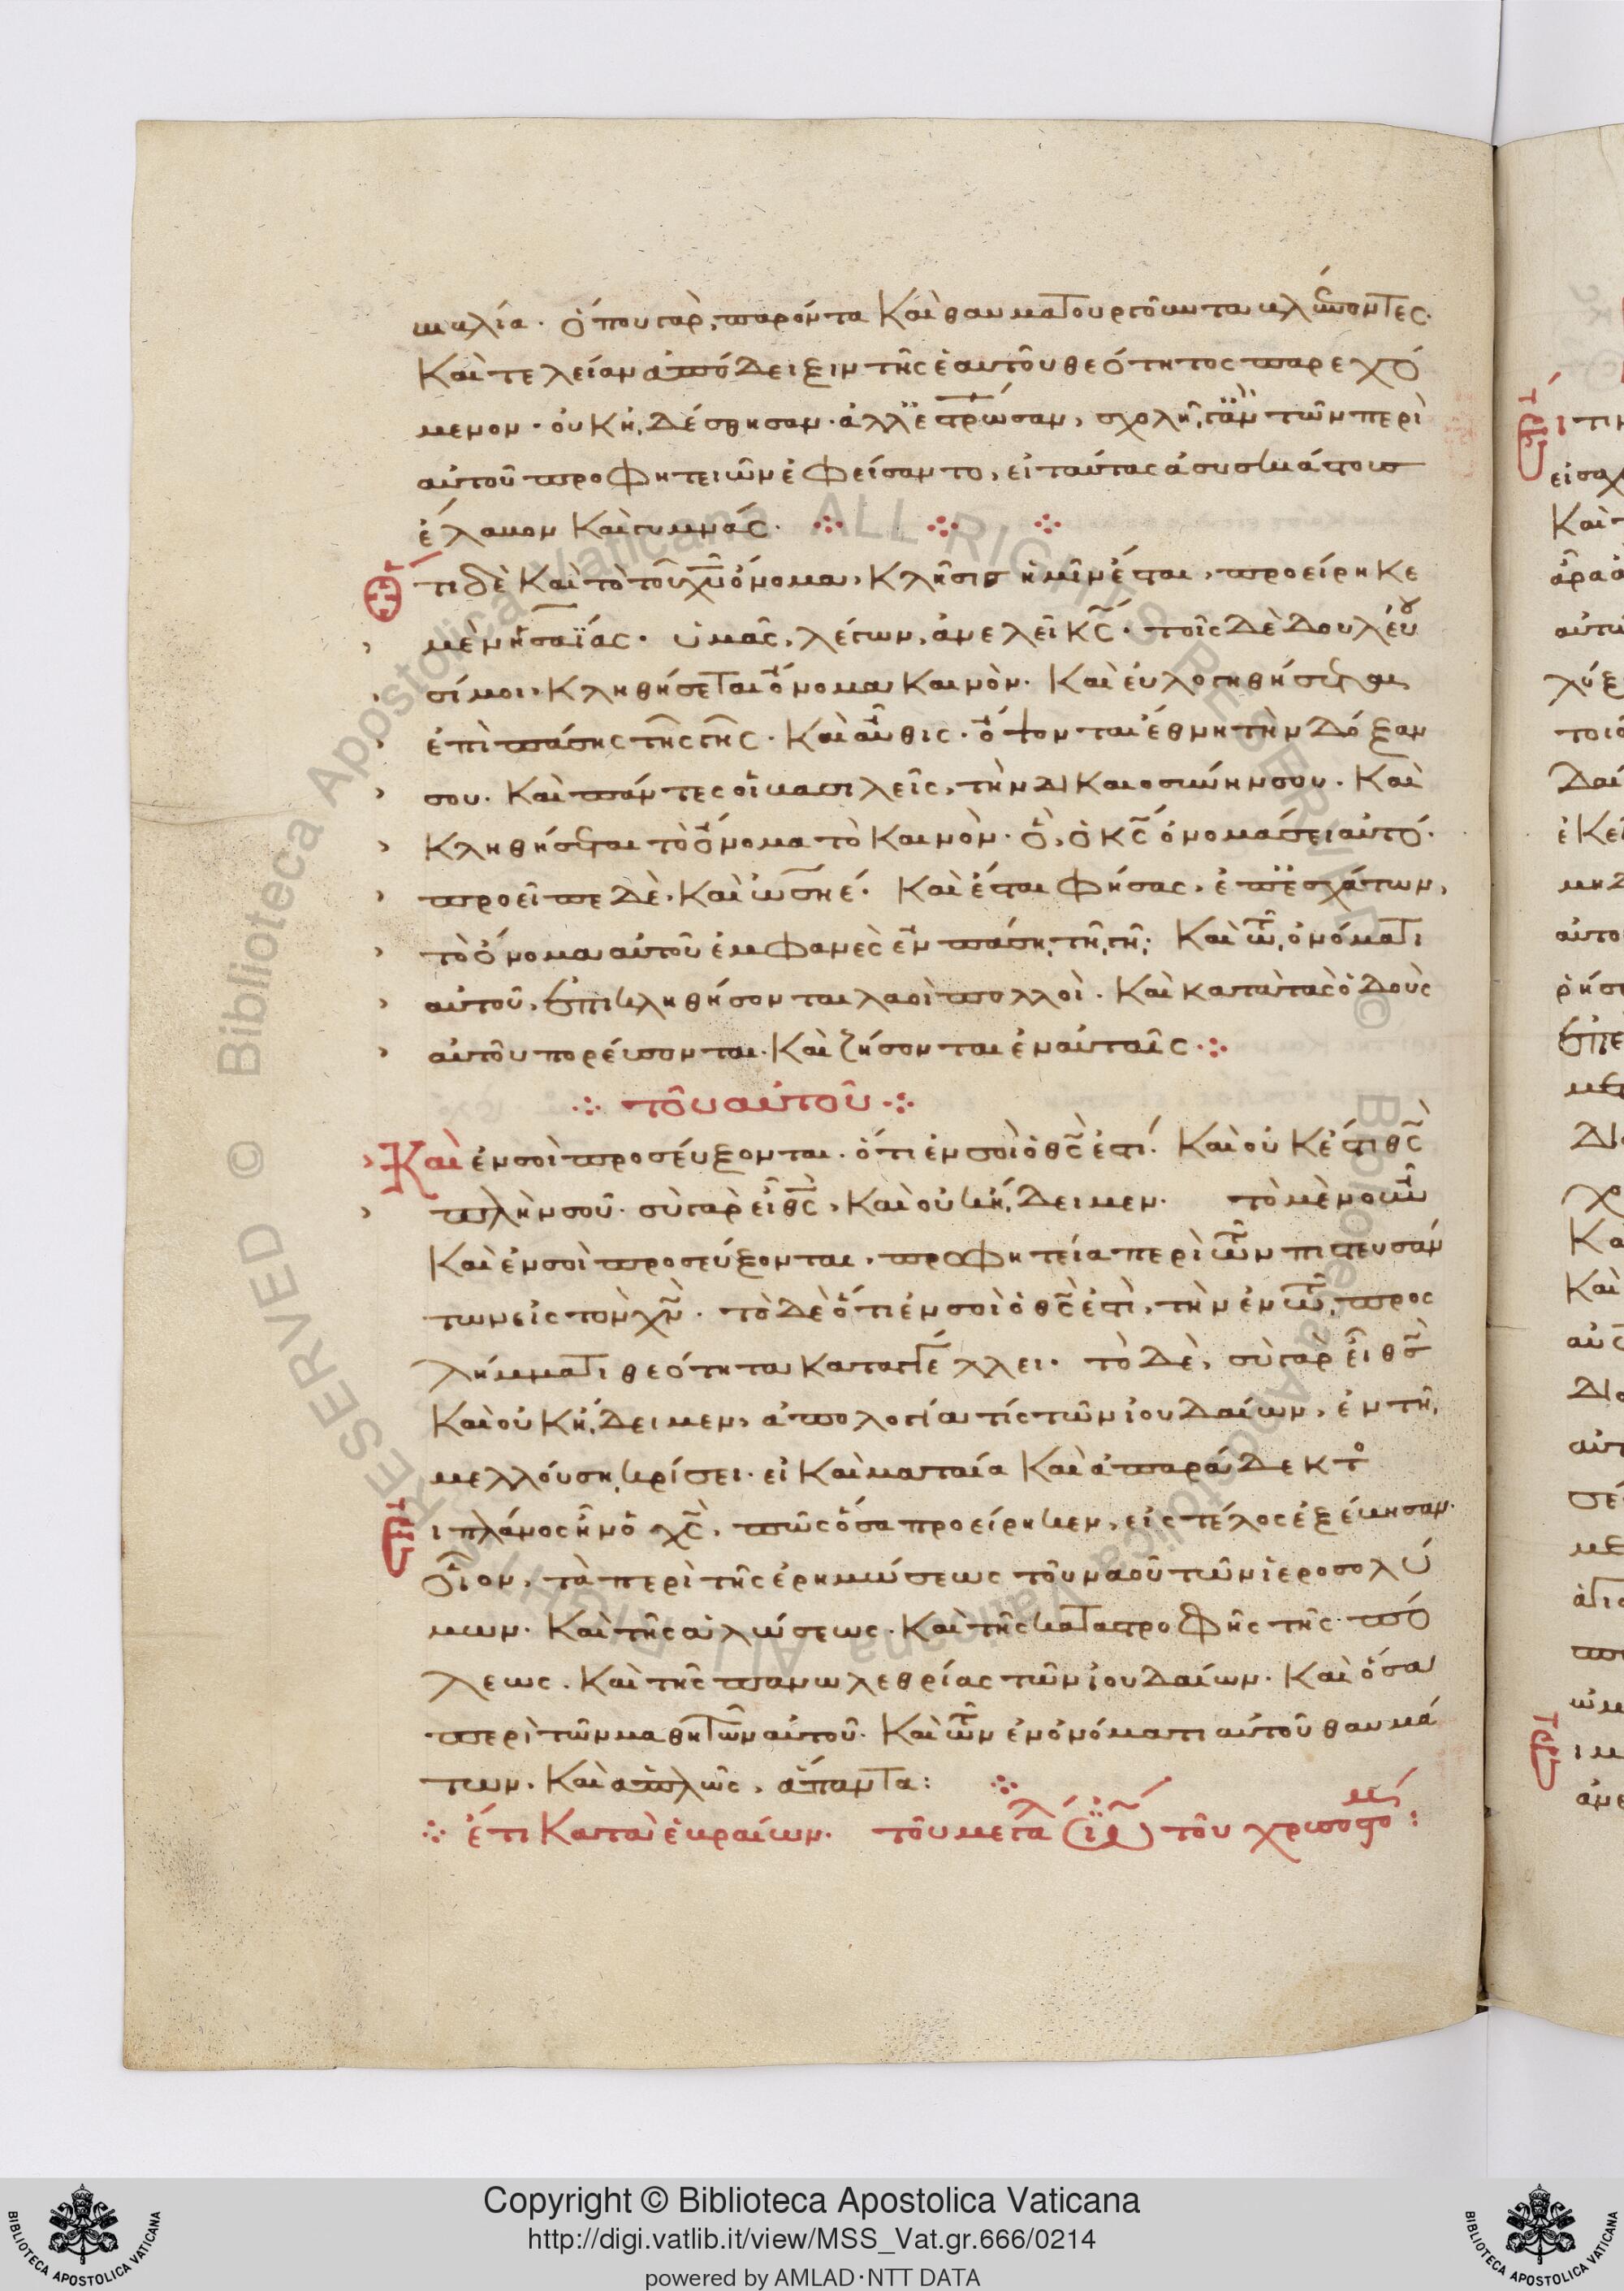 μυλία. ὅπου γὰρ, παρόντα καὶ θαυματουργοῦντα βλέποντες.
καὶ τελείαν ἀπόδειξιν τῆς ἑαυτοῦ θεότητος παρεχό
μενον. οὐκ ἠδέσθησαν. ἀλλ' ἐσταύρωσαν, σχολῇ γ' ἂν τῶν περὶ
αὐτοῦ προφητειῶν ἐφείσαντο, εἰ ταύτας ἀσυσκιάστους
ἔλαβον καὶ γυμνάς.
Ὅτι δὲ καὶ τὸ τοῦ χυ ὄνομα, κλῆσις ἡμῖν ἔσται, προείρηκε
μὲν ἡσαΐας. ὑμᾶς, λέγων, ἀνελεῖ κς. τοῖς δὲ δουλεύου
σί μοι, κληθήσεται ὄνομα καινὸν. καὶ εὐλογηθήσεται
ἐπὶ πάσης τῆς γῆς. καὶ αὖθις. ὄψονται ἔθνη τὴν δόξαν
σου. καὶ πάντες οἱ βασιλεῖς, τὴν δικαιοσύνην σου. καὶ
κληθήσεται τὸ ὄνομα τὸ καινὸν. ὃ, ὁ κς ὀνομάσει αὐτό.
προεῖπε δὲ, καὶ ὡσηέ. καὶ ἔσται φήσας, ἐπ' ἐσχάτων,
τὸ ὄνομα αὐτοῦ ἐμφανὲς ἐν πάσῃ τῇ γῇ. καὶ τῷ ὀνόματι
αὐτοῦ, ἐπικληθήσονται λαοὶ πολλοὶ. καὶ κατὰ τὰς ὁδοὺς
αὐτοῦ πορεύσονται. καὶ ζήσονται ἐν αὐταῖς
τοῦ αὐτοῦ
Καὶ ἐν σοὶ προσεύξονται. ὅτι ἐν σοὶ ὁ θς ἐστί. καὶ οὐκ ἔστι θς
πλὴν σοῦ. σὺ γὰρ εἶ θς, καὶ οὐκ ᾔδειμεν. τὸ μὲν οὖν
καὶ ἐν σοὶ προσεύξονται, προφητεία περὶ τῶν πιστευσάν
των εἰς τὸν χν. τὸ δὲ ὅτι ἐν σοὶ ὁ θς ἐστὶ, τὴν ἐν τῷ προσ
λήμματι θεότητα καταγγέλλει. τὸ δὲ, σὺ γὰρ εἶ θς
καὶ οὐκ ᾔδειμεν, ἀπολογία τίς τῶν ἰουδαίων, ἐν τῇ
μελλούσῃ κρίσει. εἰ καὶ ματαία καὶ ἀπαράδεκτος
Εἰ πλάνος ἦν ὁ χς, πῶς ὅσα προείρηκεν, εἰς τέλος ἐξέβησαν.
οἷον, τὰ περὶ τῆς ἐρημώσεως τοῦ ναοῦ τῶν ἱεροσολύ
μων. καὶ τῆς ἁλώσεως. καὶ τῆς καταστροφῆς τῆς πό
λεως. καὶ τῆς πανωλεθρίας τῶν ἰουδαίων. καὶ ὅσα
περὶ τῶν μαθητῶν αὐτοῦ. καὶ τῶν ἐν ὀνόματι αὐτοῦ θαυμά
των. καὶ ἁπλῶς, ἅπαντα:
ἔτι κατὰ ἑβραίων. τοῦ μεγάλ ἰω τοῦ χρυσοστόμ:
Copyright © Biblioteca Apostolica Vaticana
http://digi.vatlib.it/view/MSS_Vat.gr.666/0214
powered by AMLAD·NTT DATA